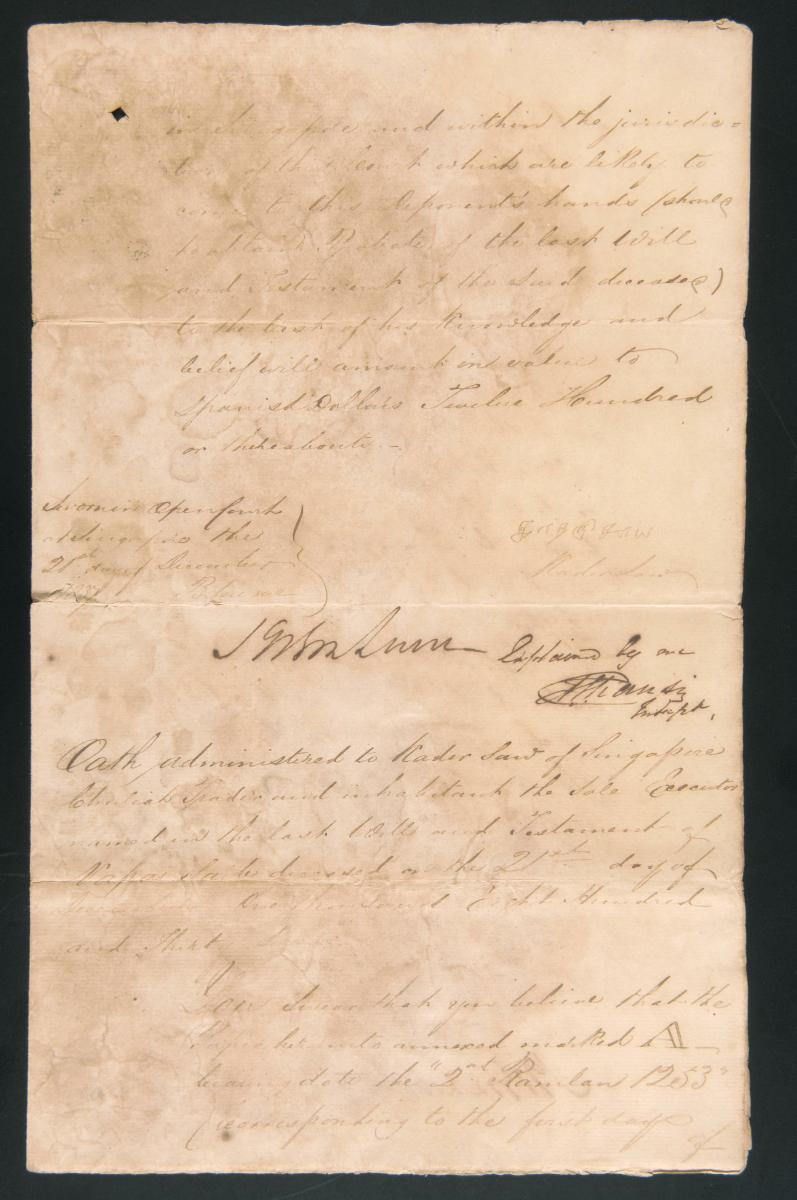 and within the jurisdic=
of this Court which are likely to
come to this Deponent's hands (should
he obtain Probate of the last Will
and Testament of the said deceased)
to the best of his knowledge and
belief will amount in value to
Spanish Dollars Twelve Hundred
or thereabouts —
Sworn in Open Court
at Singapore the
21st day of December
1837 Before me
Kader Saw
Explained by me
Intrpr.
Oath administered to Kader Saw of Singapore
Chuliah Trader and inhabitant the Sole Executor
named in the last Will and Testament of
late deceased on the 21st day of
December One thousand Eight Hundred
and Thirty
You Swear that you believe that the
Paper hereunto annexed marked A —
bearing date the "2nd Ramlan 1253"
(corresponding to the first day
of